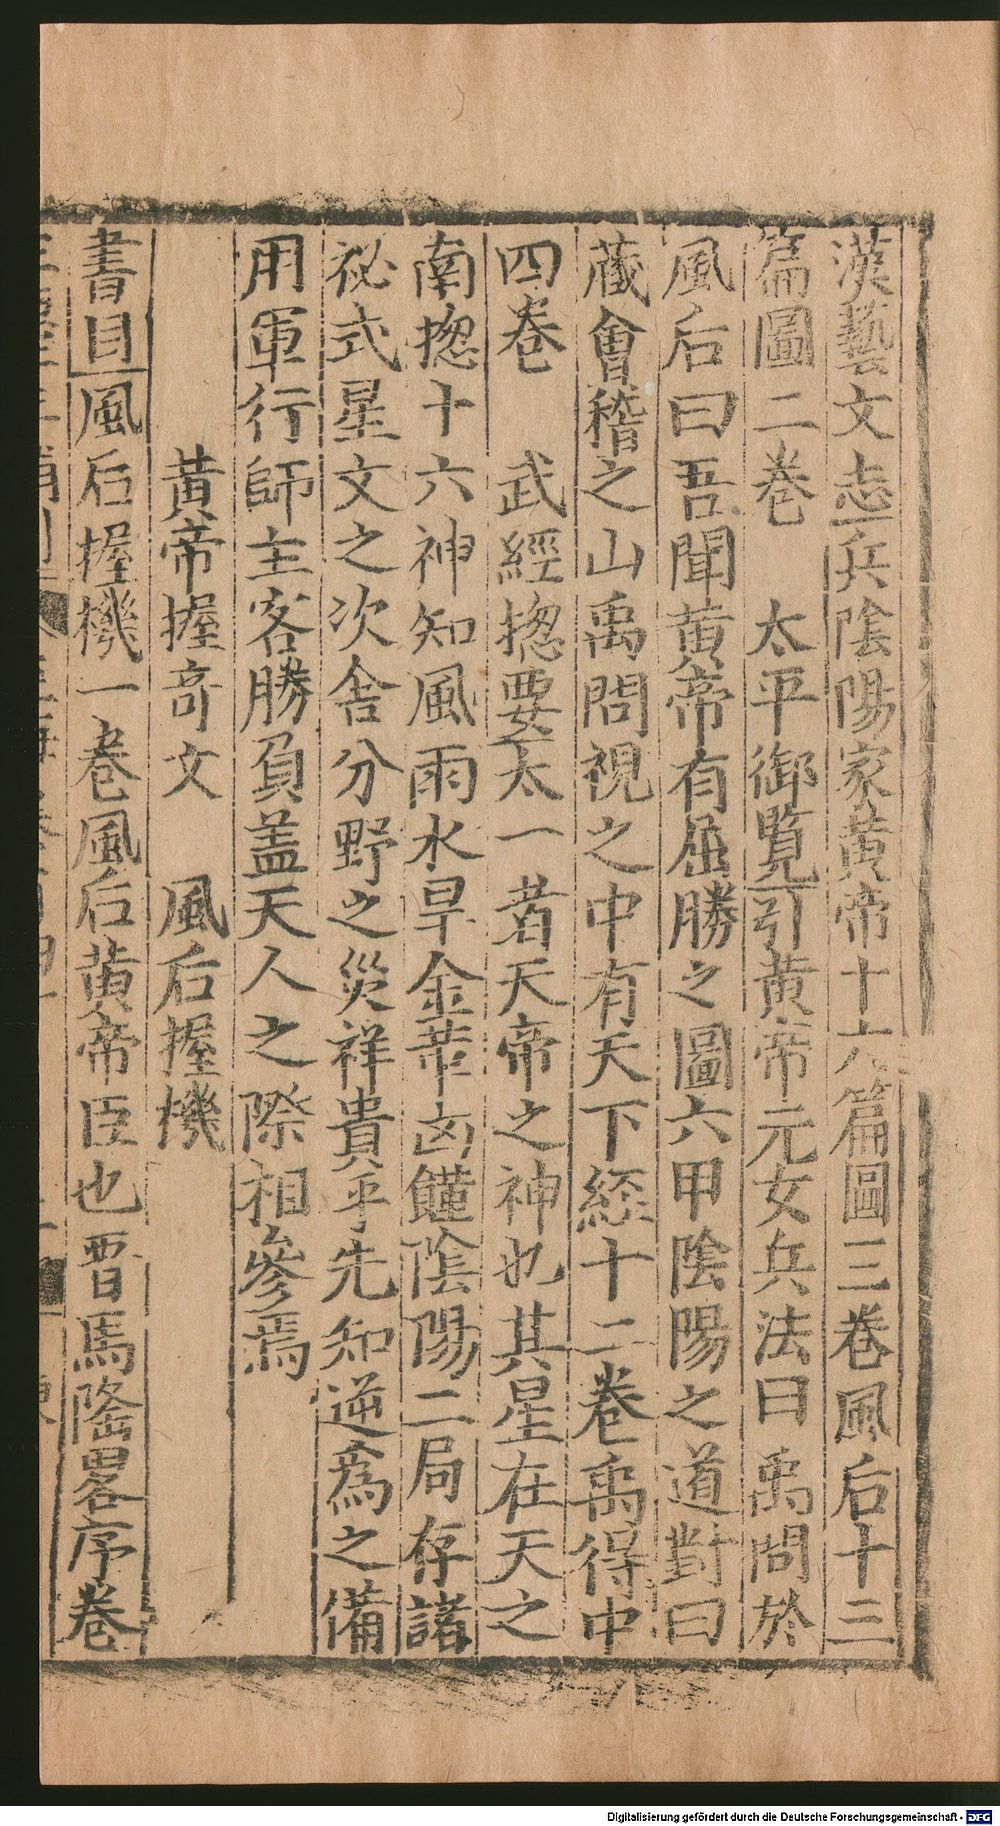 漢藝文志兵陰陽家黃帝十六篇圖三卷風后十三
篇圖二卷　太平御覽引黃帝元女兵法曰禹問於
風后曰吾聞黃帝有屈勝之圖六甲陰陽之道對曰
蔵會稽之山禹問視之中有天下經十二卷禹得中
四卷　武經揔要太一者天帝之神也其星在天之
南揔十六神知風雨水旱金革凶饉陰陽二局存諸
祕式星文之次舍分野之災祥貴乎先知逆為之備
用軍行師主客勝負盖天人之際相參焉
黃帝握奇文　風后握機
書目風后握機一卷風后黃帝臣也晉馬隆畧序卷
Digitalisierung gefördert durch die Deutsche Forschungsgemeinschaft - DFG